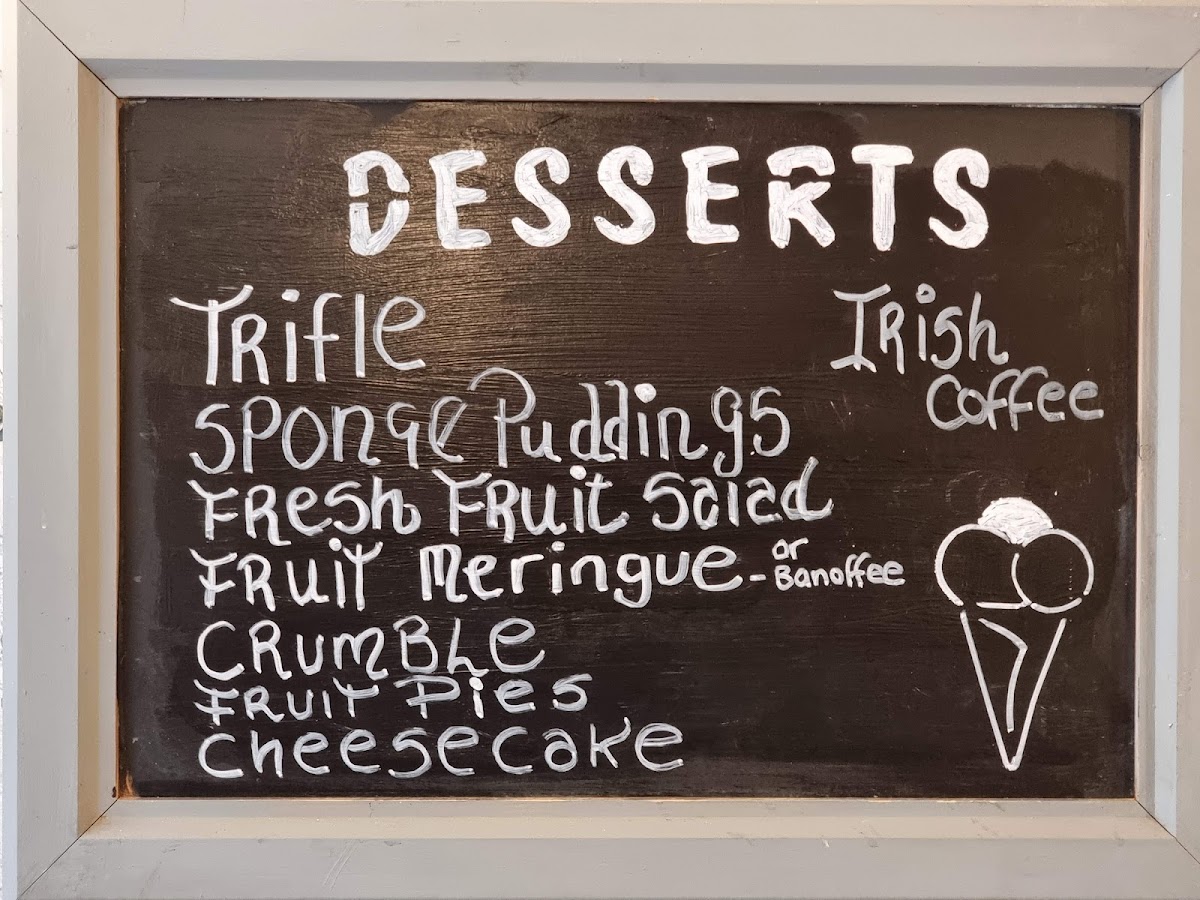 DESSERTS
Trifle
Sponge Puddings
Fresh Fruit Salad
Fruit Meringue - or Banoffee
Crumble
Fruit Pies
Cheesecake
Irish
Coffee